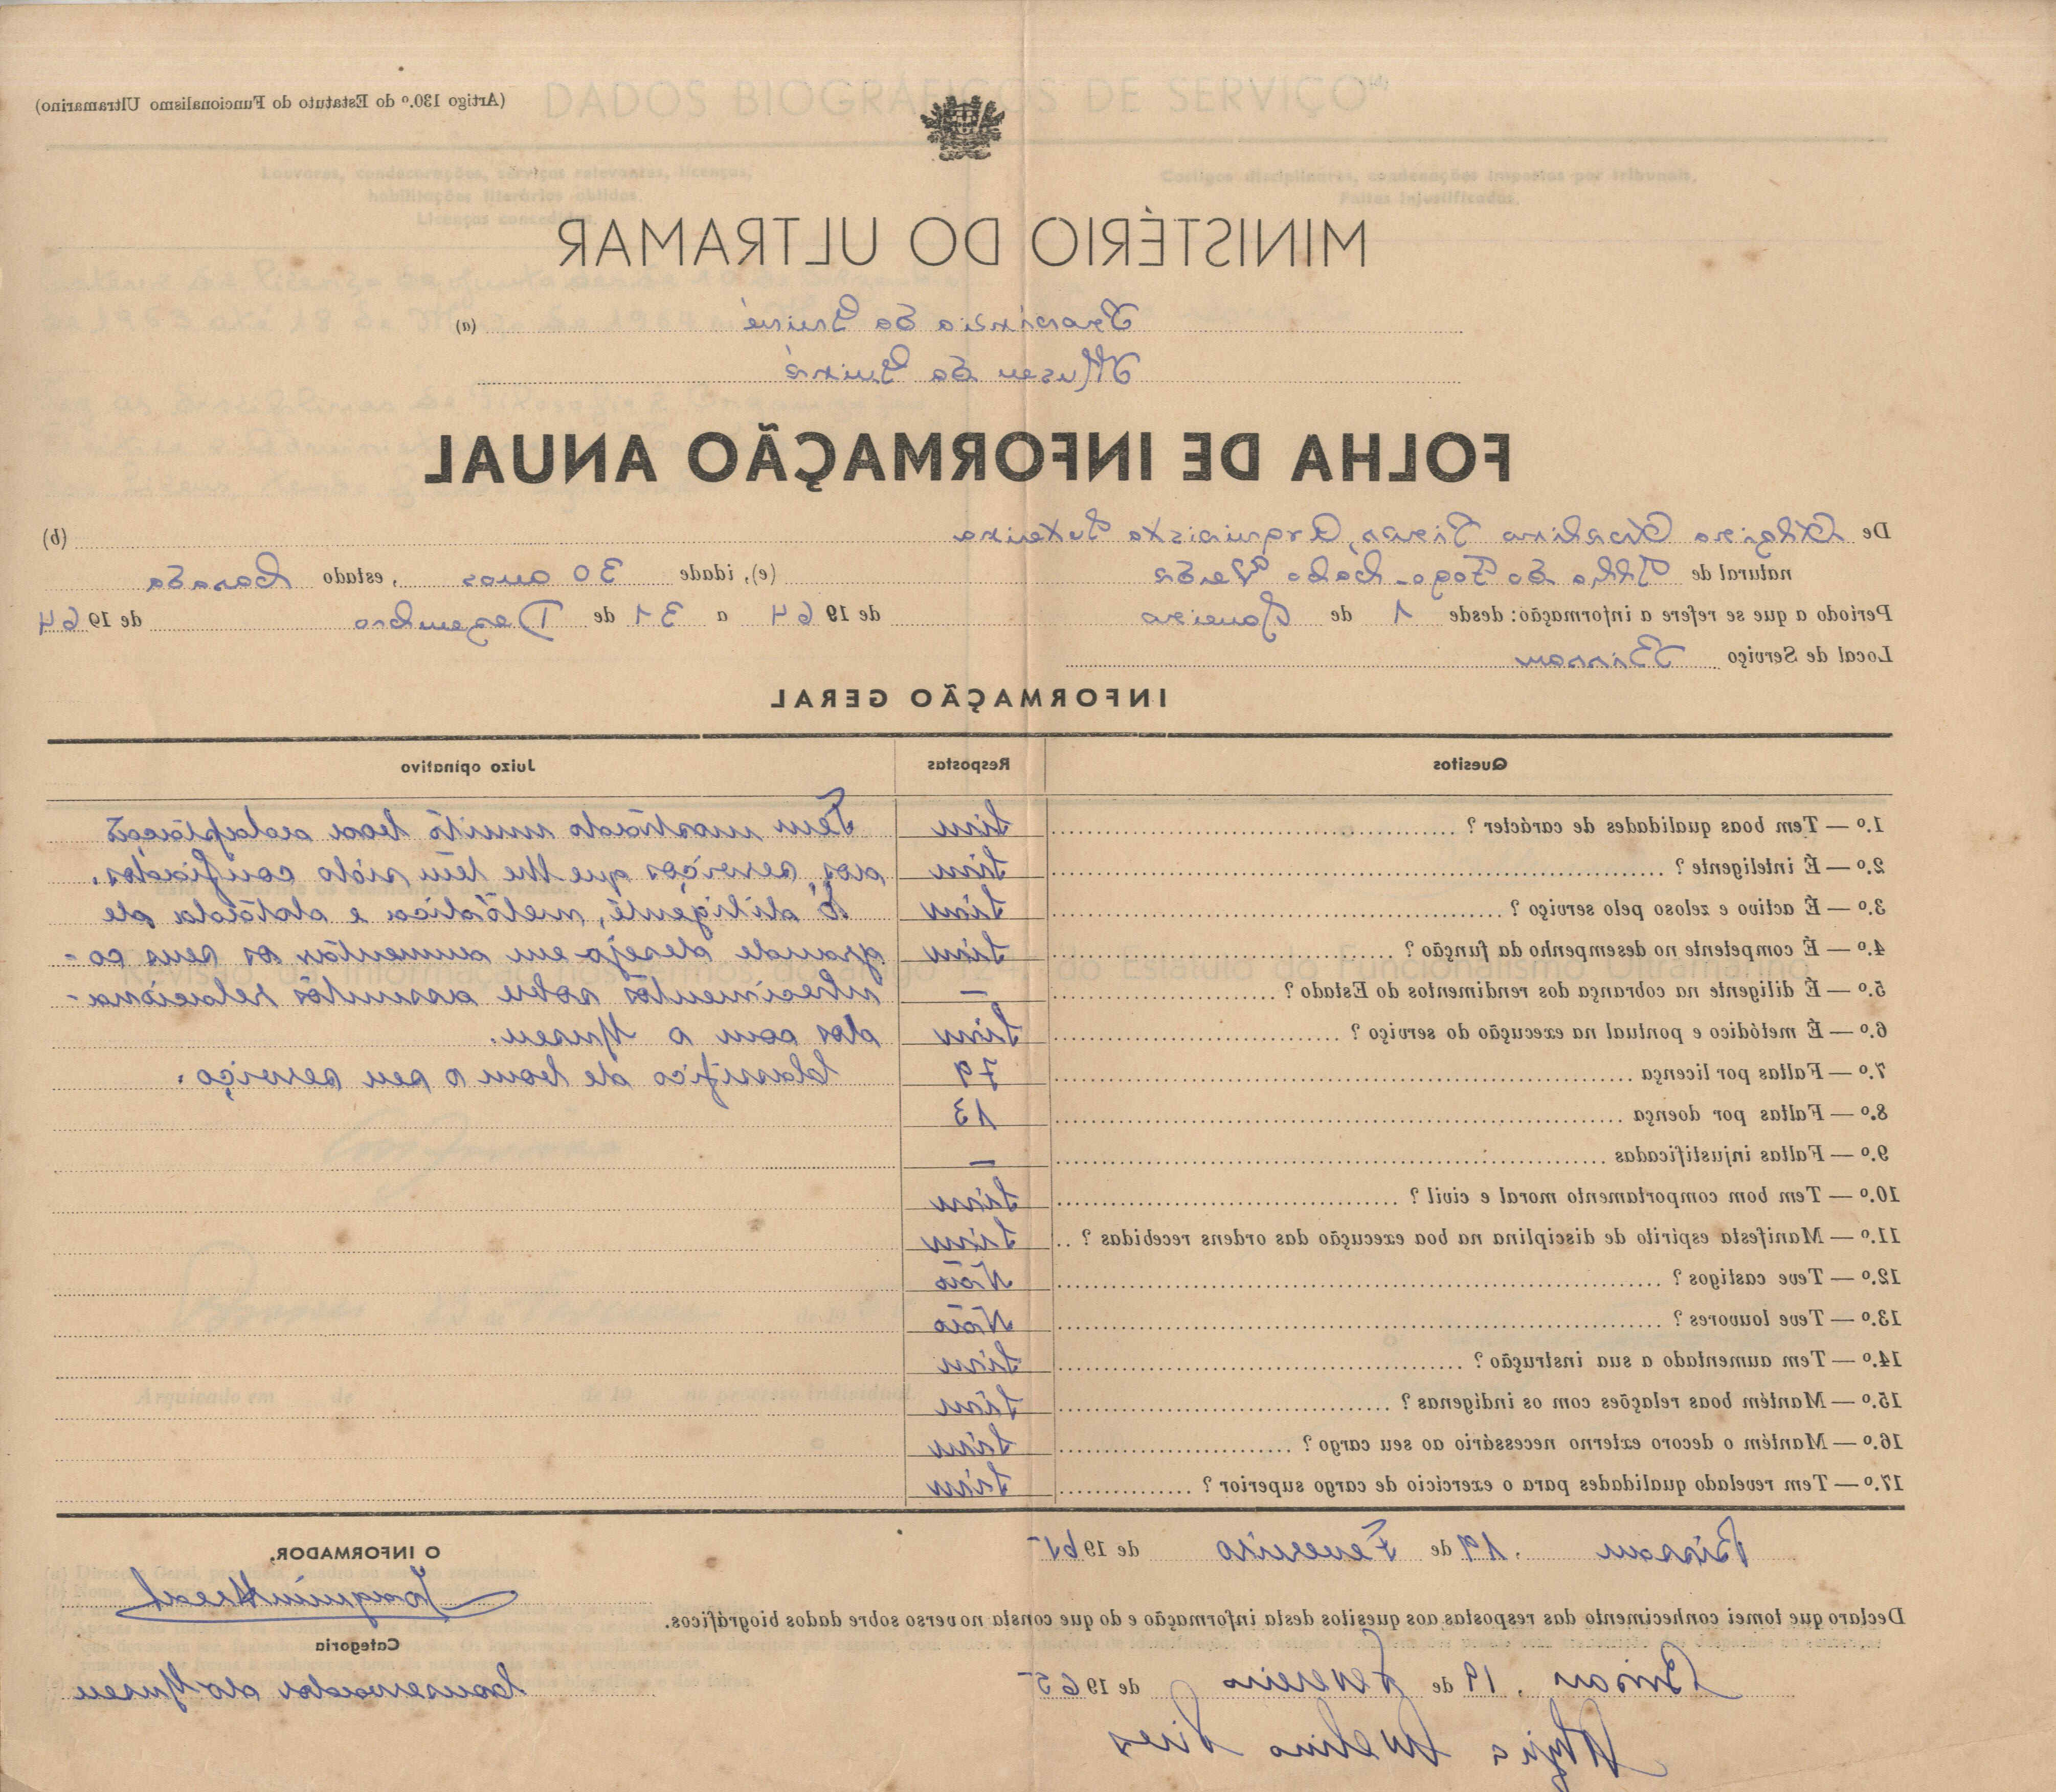 (Artigo 130.º do Estatuto do Funcionalismo Ultramarino)
MINISTÉRIO DO ULTRAMAR
Província da Guiné (a)
Museu da Guiné
FOLHA DE INFORMAÇÃO ANUAL
De Avelino Pires, Arquivista (b)
natural de Ilha do Fogo - Cabo Verde (e), idade 30 anos, estado Casada
Periodo a que se refere a informação: desde 1 de Janeiro de 1964 a 31 de Dezembro de 1964
Local de Serviço Bissau
INFORMAÇÃO GERAL
Quesitos Respostas Juizo opinativo
1.º — Tem boas qualidades de carácter? Sim Tem mostrado muito boa adaptação
2.º — É inteligente? Sim aos serviços que lhe têm sido confiados.
3.º — É activo e zeloso pelo serviço? Sim É diligente, metódica e dotada de
4.º — É competente no desempenho da função? Sim grande desejo em aumentar os seus co-
5.º — É diligente na cobrança dos rendimentos do Estado? — nhecimentos sobre assuntos relaciona-
6.º — É metódico e pontual na execução do serviço? Sim dos com o Museu.
7.º — Faltas por licença 79 Classifico de bom o seu serviço.
8.º — Faltas por doença 13
9.º — Faltas injustificadas —
10.º — Tem bom comportamento moral e civil? Sim
11.º — Manifesta espírito de disciplina na boa execução das ordens recebidas? Sim
12.º — Teve castigos? Não
13.º — Teve louvores? Não
14.º — Tem aumentado a sua instrução? Sim
15.º — Mantém boas relações com os indígenas? Sim
16.º — Mantém o decoro externo necessário ao seu cargo? Sim
17.º — Tem revelado qualidades para o exercício de cargo superior? Sim
Bissau, 19 de Fevereiro de 1965
O INFORMADOR,
Declaro que tomei conhecimento das respostas aos quesitos desta informação e do que consta no verso sobre dados biográficos.
Categoria
Conservador do Museu
Bissau, 19 de Fevereiro de 1965
Avelino Pires
DADOS BIOGRÁFICOS DE SERVIÇO